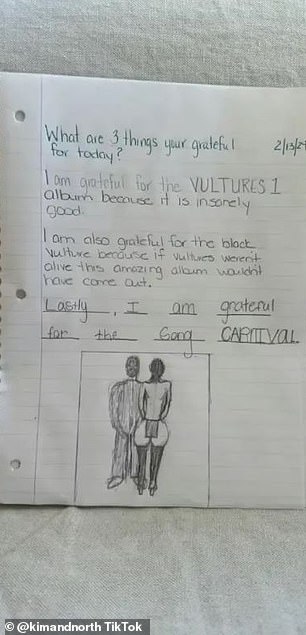 What are 3 things your grateful
for today?
2/13/24
I am grateful for the VULTURES 1
album because it is insanely
good.
I am also grateful for the black
vulture because if vultures werent
alive this amazing album wouldnt
have come out.
Lastly, I am grateful
for the Song CARNIVAL.
© @kimandnorth TikTok